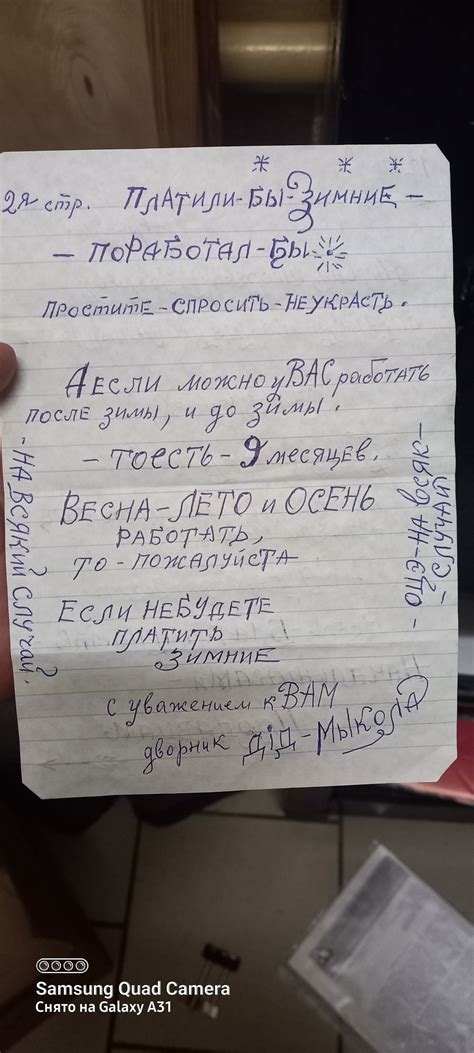 2я стр. ПЛАТИЛИ-БЫ-ЗИМНИЕ-
- ПОРАБОТАЛ-БЫ
ПРОСТИТЕ-СПРОСИТЬ-НЕУКРАСТЬ.
АЕСЛИ МОЖНО у ВАС работать
после зимы, и до зимы.
- ТОЕСТЬ- 9 месяцев.
ВЕСНА-ЛЕТО и ОСЕНЬ
РАБОТАТЬ,
ТО-ПОЖАЛУЙСТА
ЕСЛИ НЕБУДЕТЕ
ПЛАТИТЬ
ЗИМНИЕ
с уважением к ВАМ
дворник ДІД-МЫКОЛА
- НА ВСЯКИЙ СЛУЧАЙ.
- ОЦЭ-НА ВСЯК-
- СЛУЧАЙ
Samsung Quad Camera
Снято на Galaxy A31